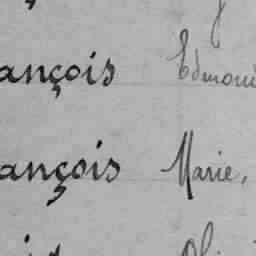 ançois Edmond
ançois Marie,